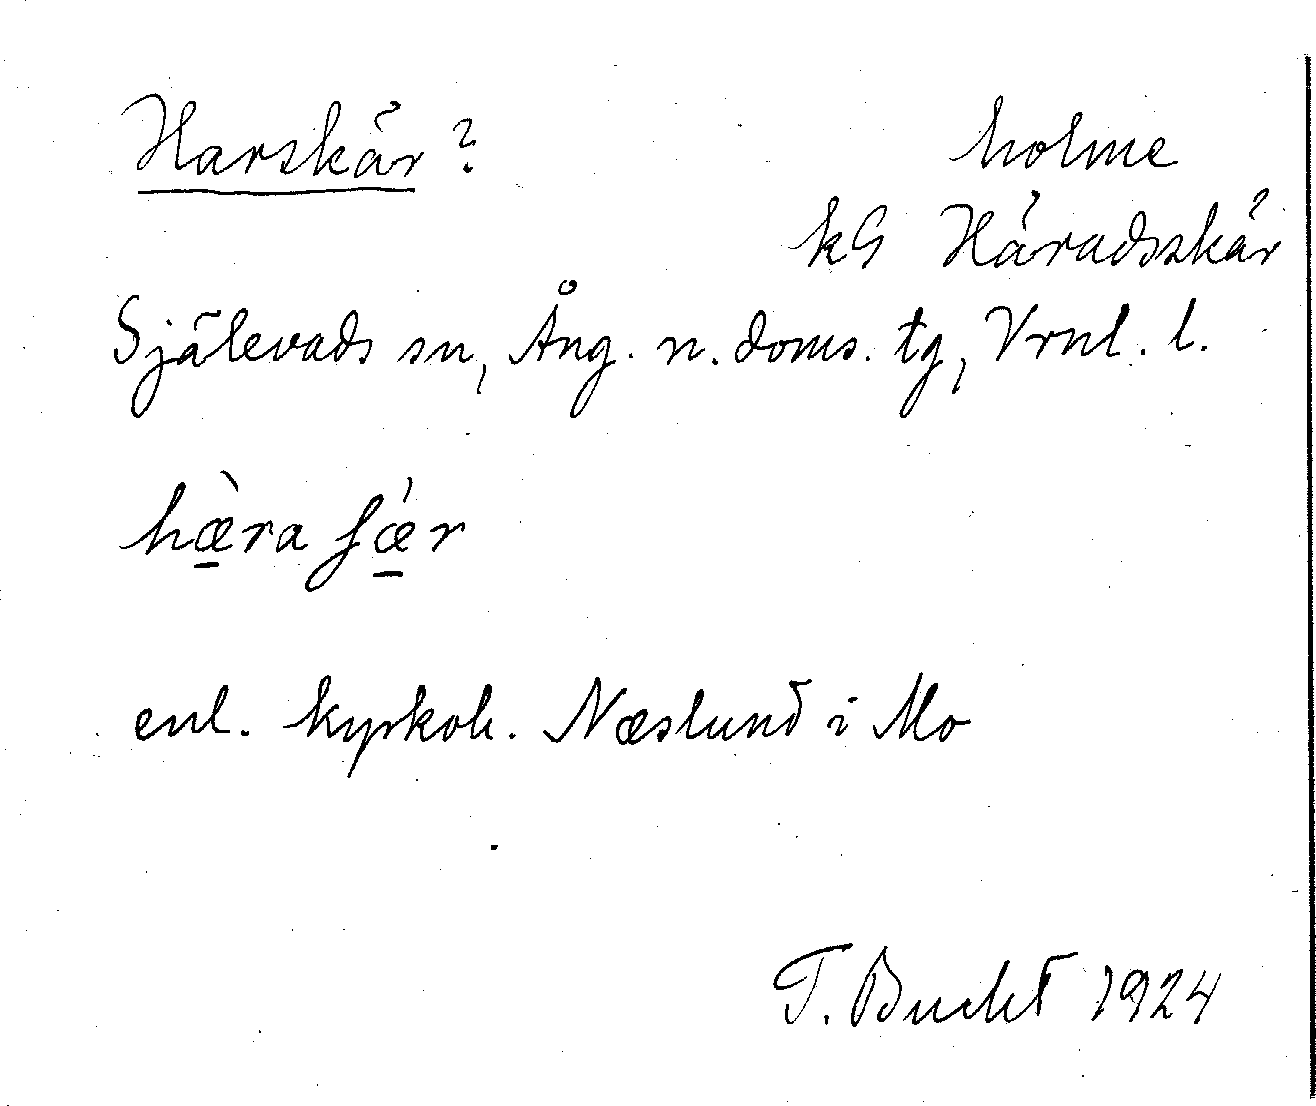 Harskär ?
holme
kG Häradsskär
Själevads sn, Ång. n. doms. tg, Vrnl. l.
hæ̀ra ʃǽr
enl. kyrkoh. Næslund i Mo
T. Bucht 1924